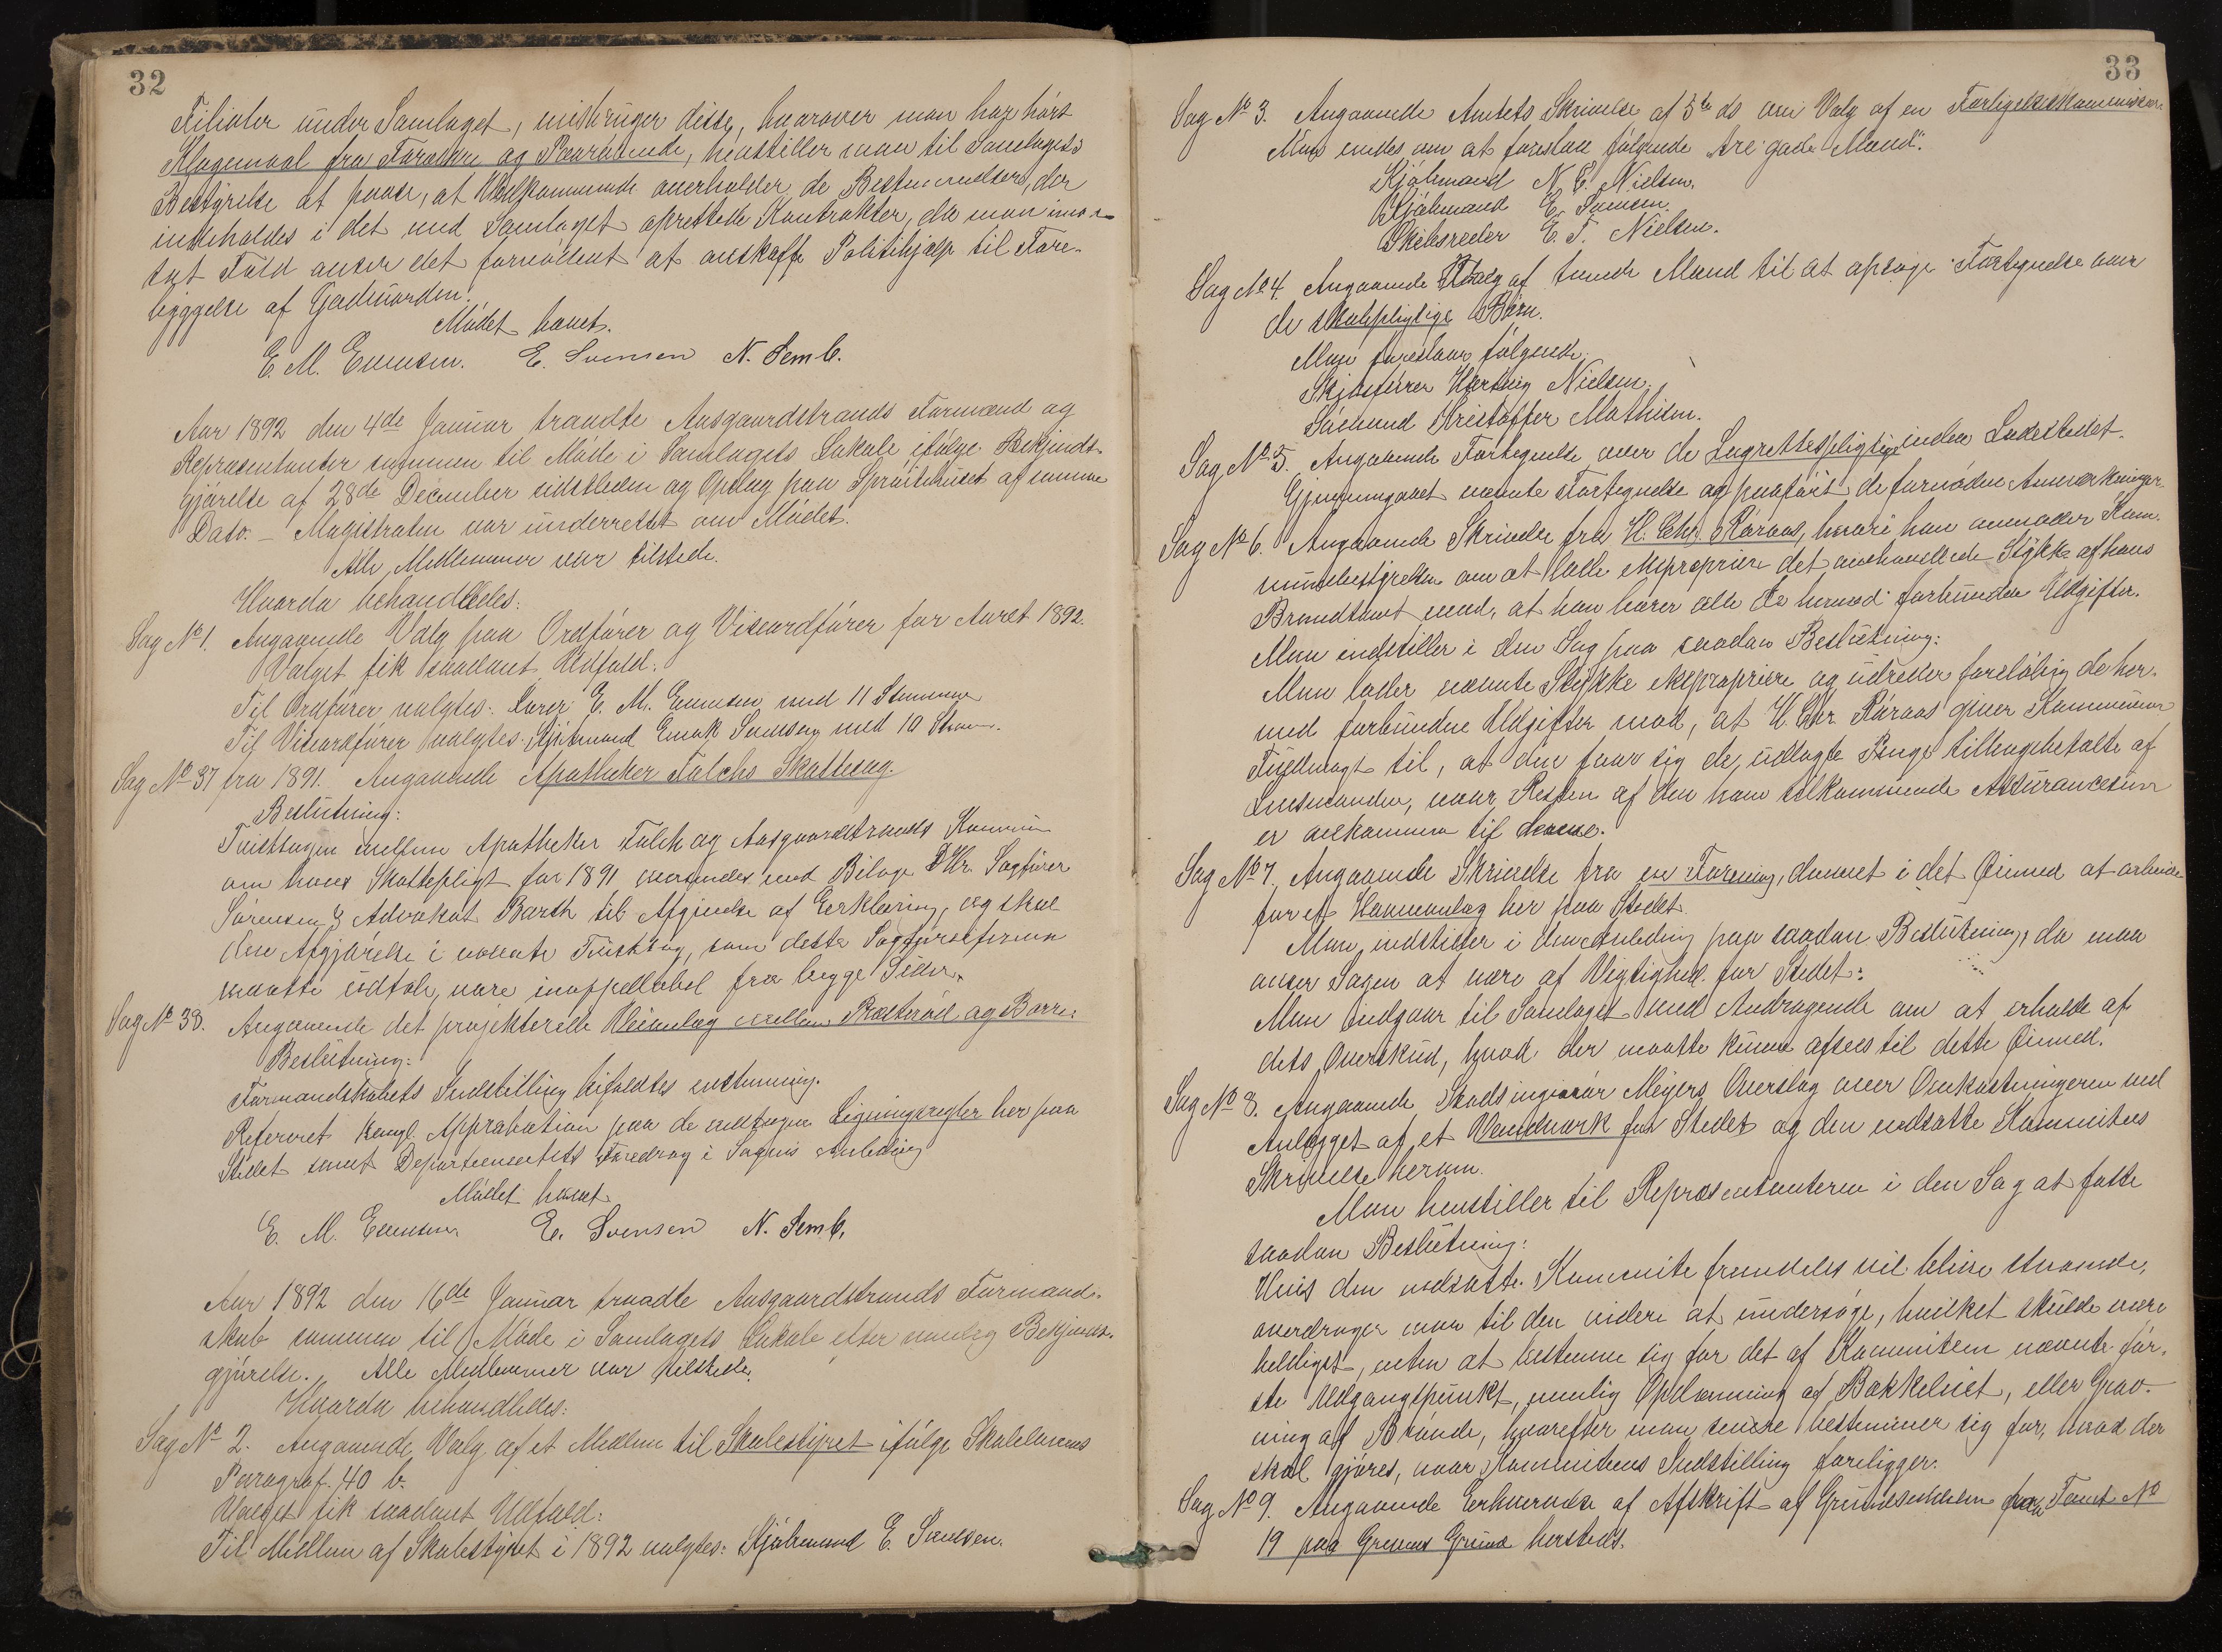 32
Filialer under Samlaget, misbruger disse, hvorover man har hört
Klagemaal fra Foreldre og Paarörende, henstiller man til Samlagets
Bestyrelse at paase, at Vedkommende overholder de Bestemmelser, der
indeholdes i det med Samlaget oprettede Kontrakter, da man i mod-
sat Fald anser det fornödent at anskaffe Politihjælp til Fore-
byggelse af Gaduorden.
Mödet hævet.
E. M. Evensen. E. Svensen N. Semb.
Aar 1892 den 4de Januar traadte Aasgaardstrands Formænd og
Repræsentanter sammen til Möde i Samlagets Lokale ifölge Bekjendt-
gjörelse af 28de December sidstleden og Opslag paa Spröitehuset af samme
Dato. - Magistraten var underrettet om Mödet.
Alle Medlemmer var tilstede.
Hvorda behandledes:
Sag No 1. Angaaende Valg paa Ordförer og Viseordförer for Aaret 1892.
Valget fik saadant Udfald:
Til Ordförer valgtes: E. M. Evensen med 11 Stemmer
Til Viseordförer valgtes: Sjömand Svensen med 10 Stem.
Sag No 37 fra 1891. Angaaende Apotheker Falchs Skattesag.
Beslutning:
Tvistsagen mellem Apotheker Falch og Aasgaardstrands Kommune
om hans Skattepligt for 1891 oversendes med Bilage Hr. Sagförer
Sörensen & Advokat Barth til Afgivelse af Erklæring, og skal
den Afgjörelse i nævnte Tvistsag, som dette Sagförerfirma
maatte udtale, være inappellabel fra begge Sider.
Sag No 38. Angaaende det projekterede Veianlæg mellem og Borre:
Beslutning:
Formandskabets Indstilling bifaldtes enstemmig.
Refereret kongl. Approbation paa de vedtagne Ligningsregler her paa
Stedet samt Departementets Foredrag i Sagens Anledning
Mödet hævet
E. M. Evensen. E. Svensen N. Semb.
Aar 1892 den 16de Januar traadte Aasgaardstrands Formand-
skab sammen til Möde i Samlagets Lokale efter lovlig Bekjendt-
gjörelse. Alle Medlemmer var tilstede.
Hvorda behandledes:
Sag No 2. Angaaende Valg af et Medlem til Skolestyret ifölge Skolelovens
Paragraf 40 b.
Valget fik saadant Udfald:
Til Medlem af Skolestyret i 1892 valgtes: Skjöbmand E. Svensen.
33
Sag No 3. Angaaende Amtets Skrivelse af 5te ds om Valg af en Forligelseskommissær
Man enedes om at foreslaa fölgende "tre gode Mænd":
Kjöbmand N. E. Nielsen.
Kjöbmand E. Svensen.
Skibsreder E. T. Nielsen.
Sag No 4. Angaaende Valg af tvende Mænd til at optage Fortegnelse over
de skolepligtige Börn.
Man foreslaar fölgende:
Skibsförer Nielsen.
Sömand Kristoffer Mathisen.
Sag No 5. Angaaende Fortegnelse over de Lagrettespligtige inden Ladestedet.
Gjennemgaaet nævnte Fortegnelse og paaført de fornödne Anmærkninger.
Sag No 6. Angaaende Skrivelse fra H. Chr. Röraas, hvori han anmoder Kom-
munebestyrelsen om at lade expropriere det omhandlede Stykke af hans
Brandtomt mod, at han bærer alle de hermed forbundne Udgifter.
Man indstiller i den Sag paa saadan Beslutning:
Man lader nævnte Stykke expropriere og udreder forelöbig de her-
med forbundne Udgifter mod, at H. Chr. Röraas giver Kommunen
Fuldmagt til, at den faar sig de udlagte Penge tilbagebetalte af
Lensmanden, naar Resten af den ham tilkommende Assurancesum
er ankommen til denne.
Sag No 7. Angaaende Skrivelse fra en Forening, dannet i det Öiemed at arbeide
for et Havneanlæg her paa Stedet.
Man indstiller i den Anledning paa saadan Beslutning, da man
anser Sagen at være af Vigtighed for Stedet:
Man indgaar til Samlaget med Andragende om at erholde af
dets Overskud, hvad der maatte kunne afsees til dette Öiemed.
Sag No 8. Angaaende Stadsingeniör Meyers Overslag over Omkostningerne ved
Anlægget af et Vandværk for Stedet og den nedsatte Kommites
Skrivelse herom.
Man henstiller til Repræsentanterne i den Sag at fatte
saadan Beslutning:
Hvis den nedsatte Kommite fremdeles vil blive staaende,
overdrager man til den videre at undersöge, hvilket skulde være
heldigst, enten at bestemme sig for det af Kommiteen nævnte för-
ste Udgangspunkt, nemlig Opdæmning af, eller Grav-
ning af Brönde, hvorefter man senere bestemmer sig for, hvad der
skal gjöres, naar Kommiteens Indstilling foreligger.
Sag No 9. Angaaende Erhvervelse af Afskrift af Grundseddelen paa Tomt No
19 paa Grevens Grund hersteds.